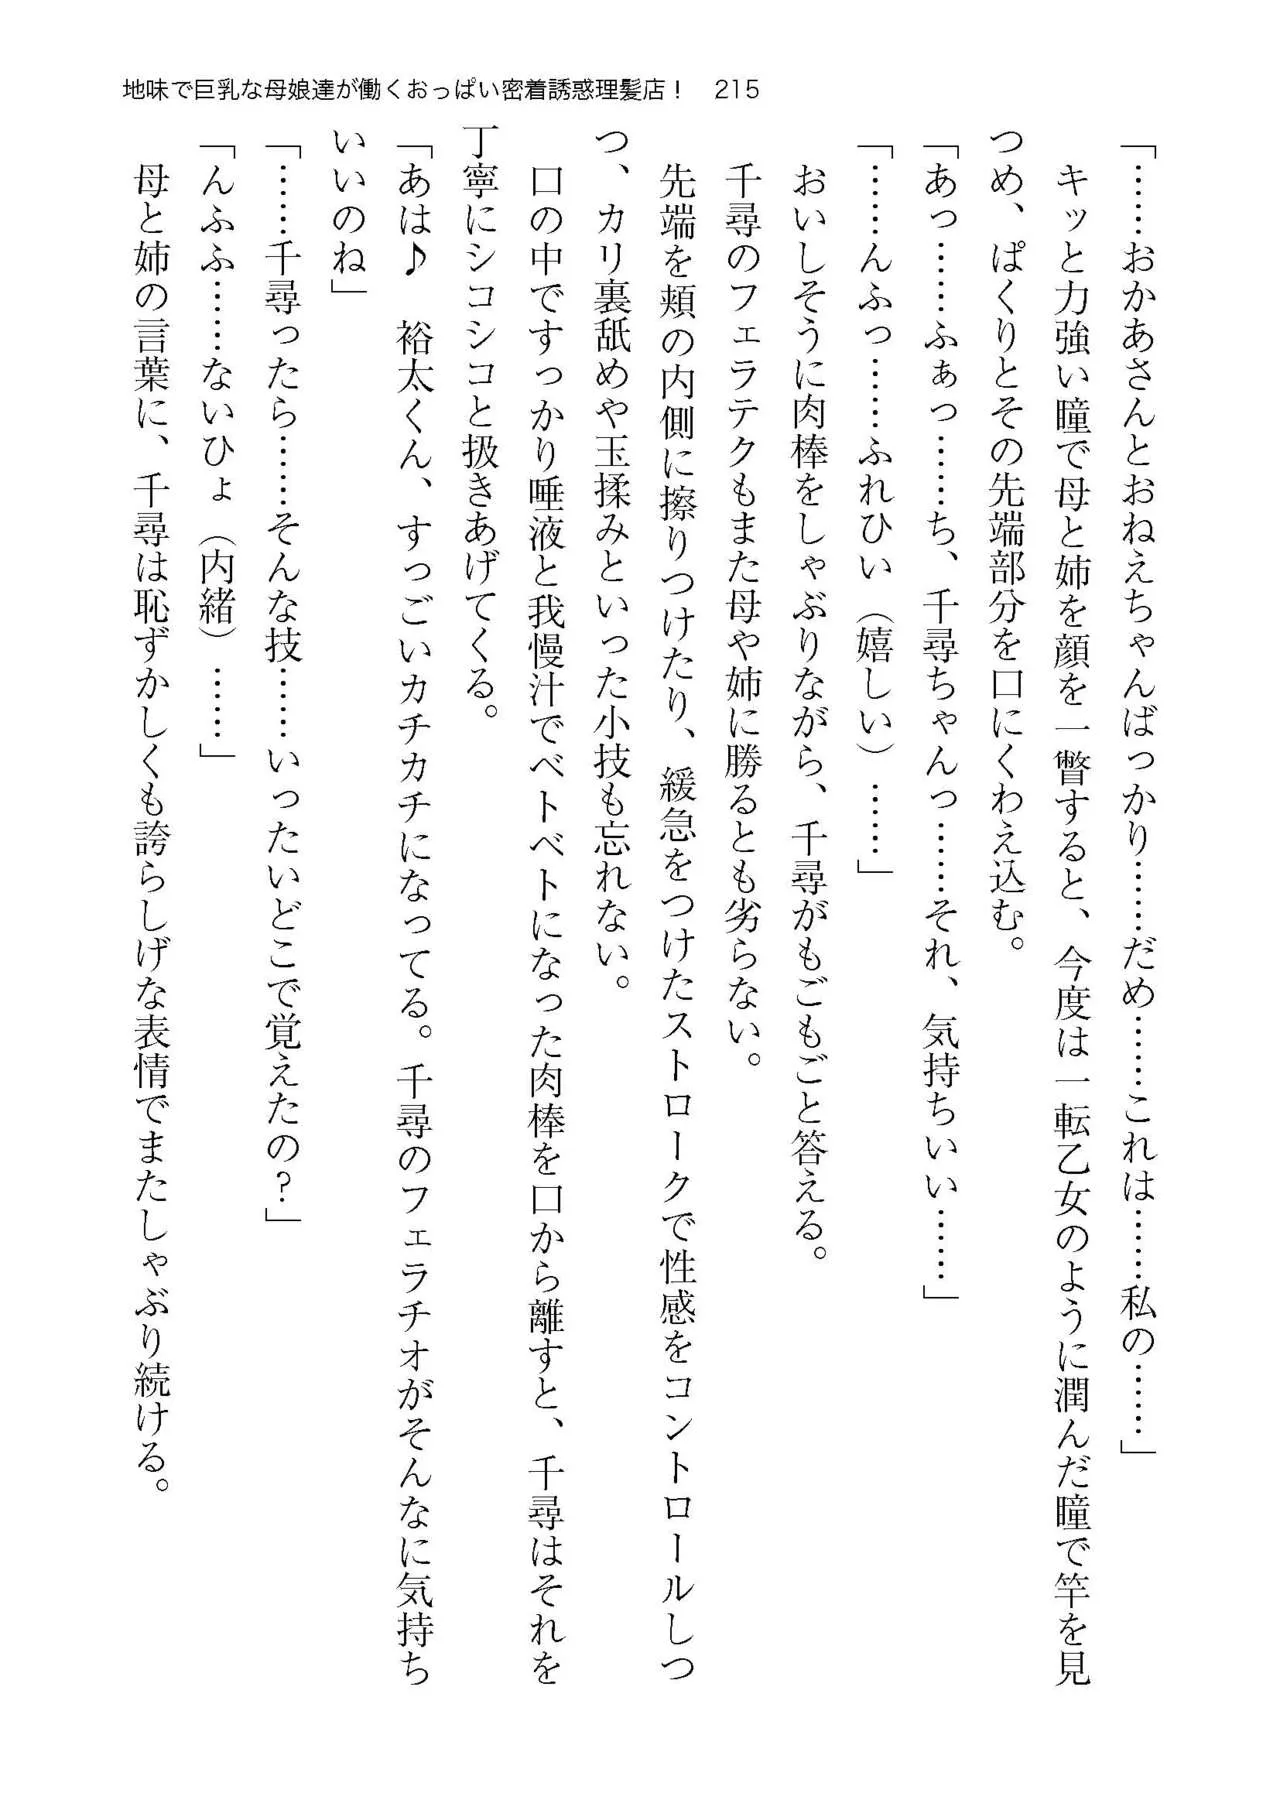 地味で巨乳な母娘達が働くおっぱい密着誘惑理髪店！　215
「……おかあさんとおねえちゃんばっかり……だめ……これは……私の……」
　キッと力強い瞳で母と姉を顔を一瞥すると、今度は一転乙女のように潤んだ瞳で竿を見
つめ、ぱくりとその先端部分を口にくわえ込む。
「あっ……ふぁっ……ち、千尋ちゃんっ……それ、気持ちいい……」
「……んふっ……ふれひい（嬉しい）……」
　おいしそうに肉棒をしゃぶりながら、千尋がもごもごと答える。
　千尋のフェラテクもまた母や姉に勝るとも劣らない。
　先端を頬の内側に擦りつけたり、緩急をつけたストロークで性感をコントロールしつ
つ、カリ裏舐めや玉揉みといった小技も忘れない。
　口の中ですっかり唾液と我慢汁でベトベトになった肉棒を口から離すと、千尋はそれを
丁寧にシコシコと扱きあげてくる。
「あは♪　裕太くん、すっごいカチカチになってる。千尋のフェラチオがそんなに気持ち
いいのね」
「……千尋ったら……そんな技……いったいどこで覚えたの？」
「んふふ……ないひょ（内緒）……」
　母と姉の言葉に、千尋は恥ずかしくも誇らしげな表情でまたしゃぶり続ける。